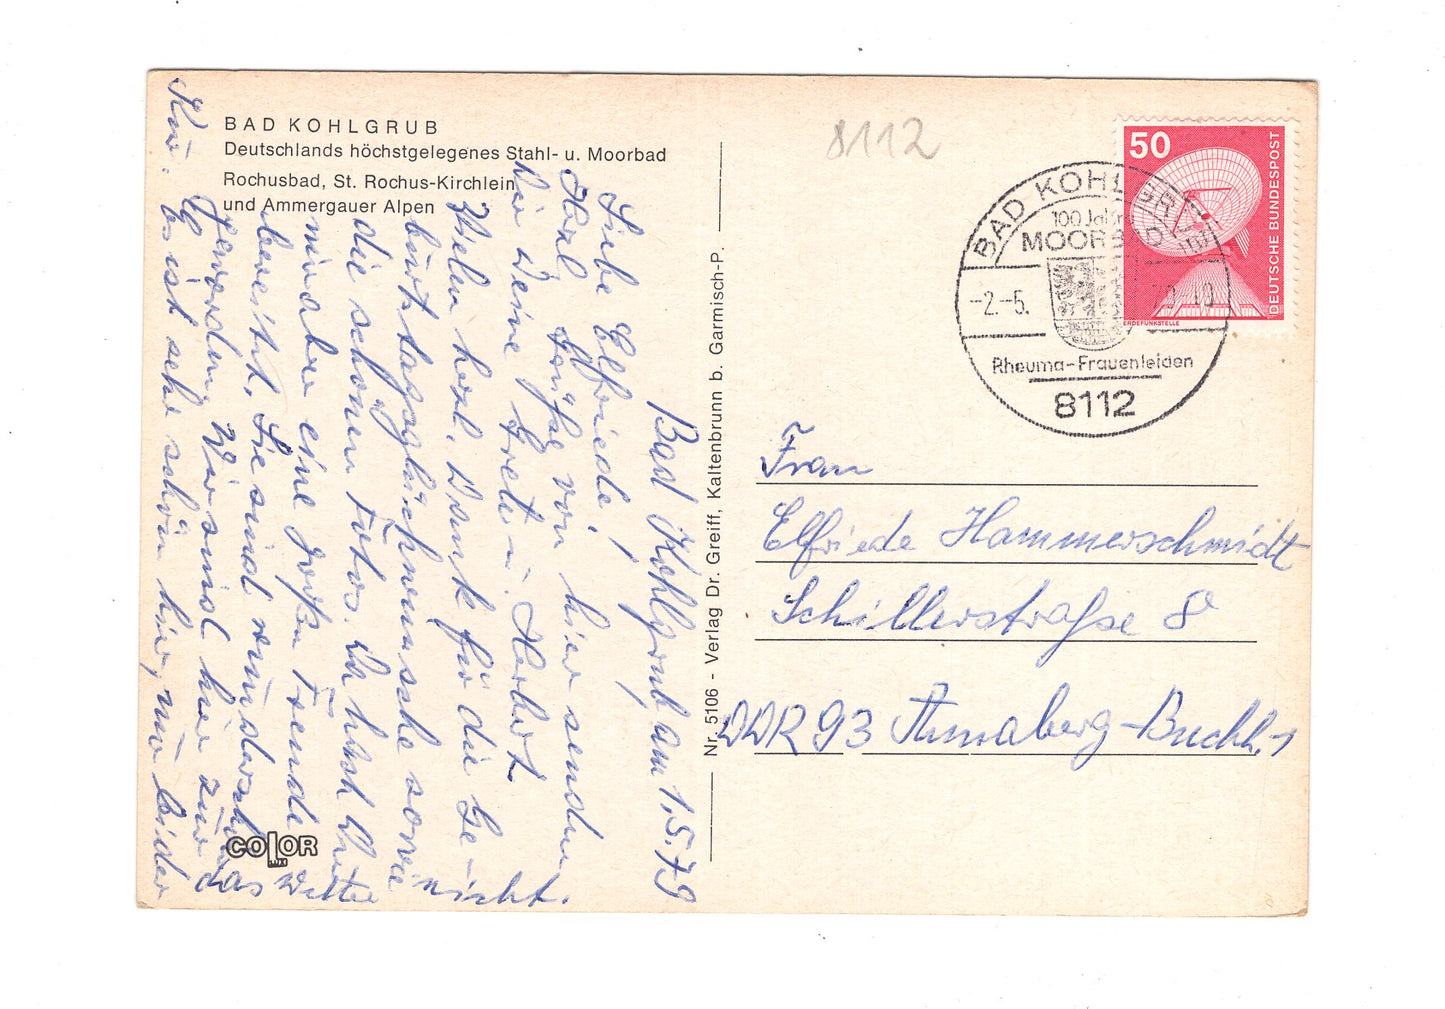 BAD KOHLGRUB
Deutschlands höchstgelegenes Stahl- u. Moorbad
Rochusbad, St. Rochus-Kirchlein
und Ammergauer Alpen
Bad Kohlgrub, am 1.5.79
Liebe Elfriede,
Herzl. Grüße von hier senden
Dir Deine Gretel u. Herbert.
Vielen herzl. Dank für die Ge-
burtstagsglückwünsche sowie
die schönen Fotos. Ihr habt
mir aber eine große Freude
bereitet. Sie sind wunderschön
geworden. Wir sind hier zur
Kur. Es ist sehr schön hier, nur leider
das Wetter
nicht.
COLOR
LUX
Nr. 5106 - Verlag Dr. Greiff, Kaltenbrunn b. Garmisch-P.
8112
50
DEUTSCHE BUNDESPOST
ERDEFUNKSTELLE
BAD KOHLGRUB
100 Jahre
MOORBAD
-2.-5.
Rheuma-Frauenleiden
8112
Frau
Elfriede Hammerschmidt
Schillerstraße 8
DDR 93 Annaberg-Buchh. 1